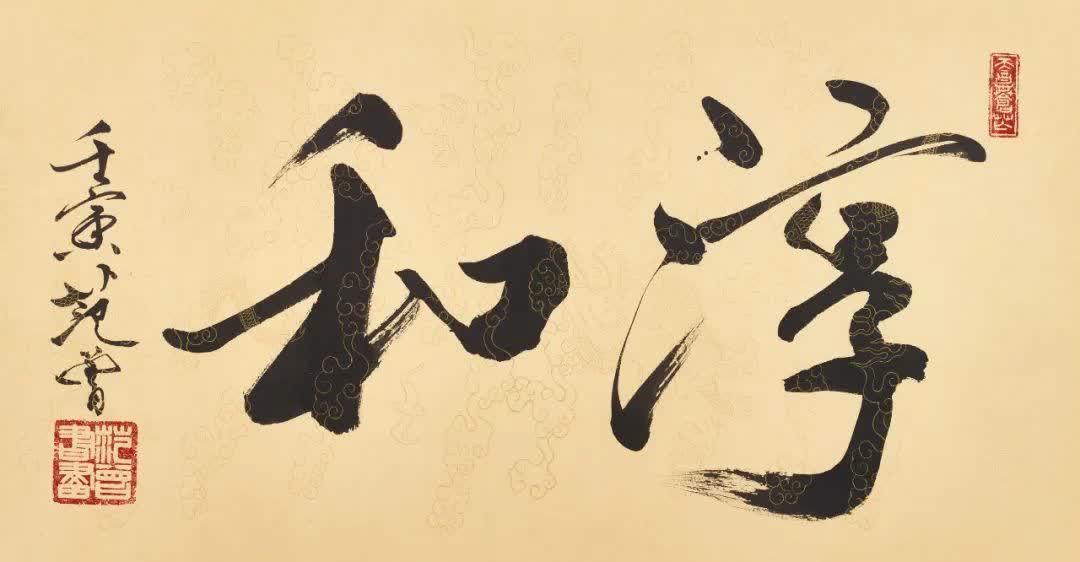 淳和
壬寅 范曾
范曾書畫